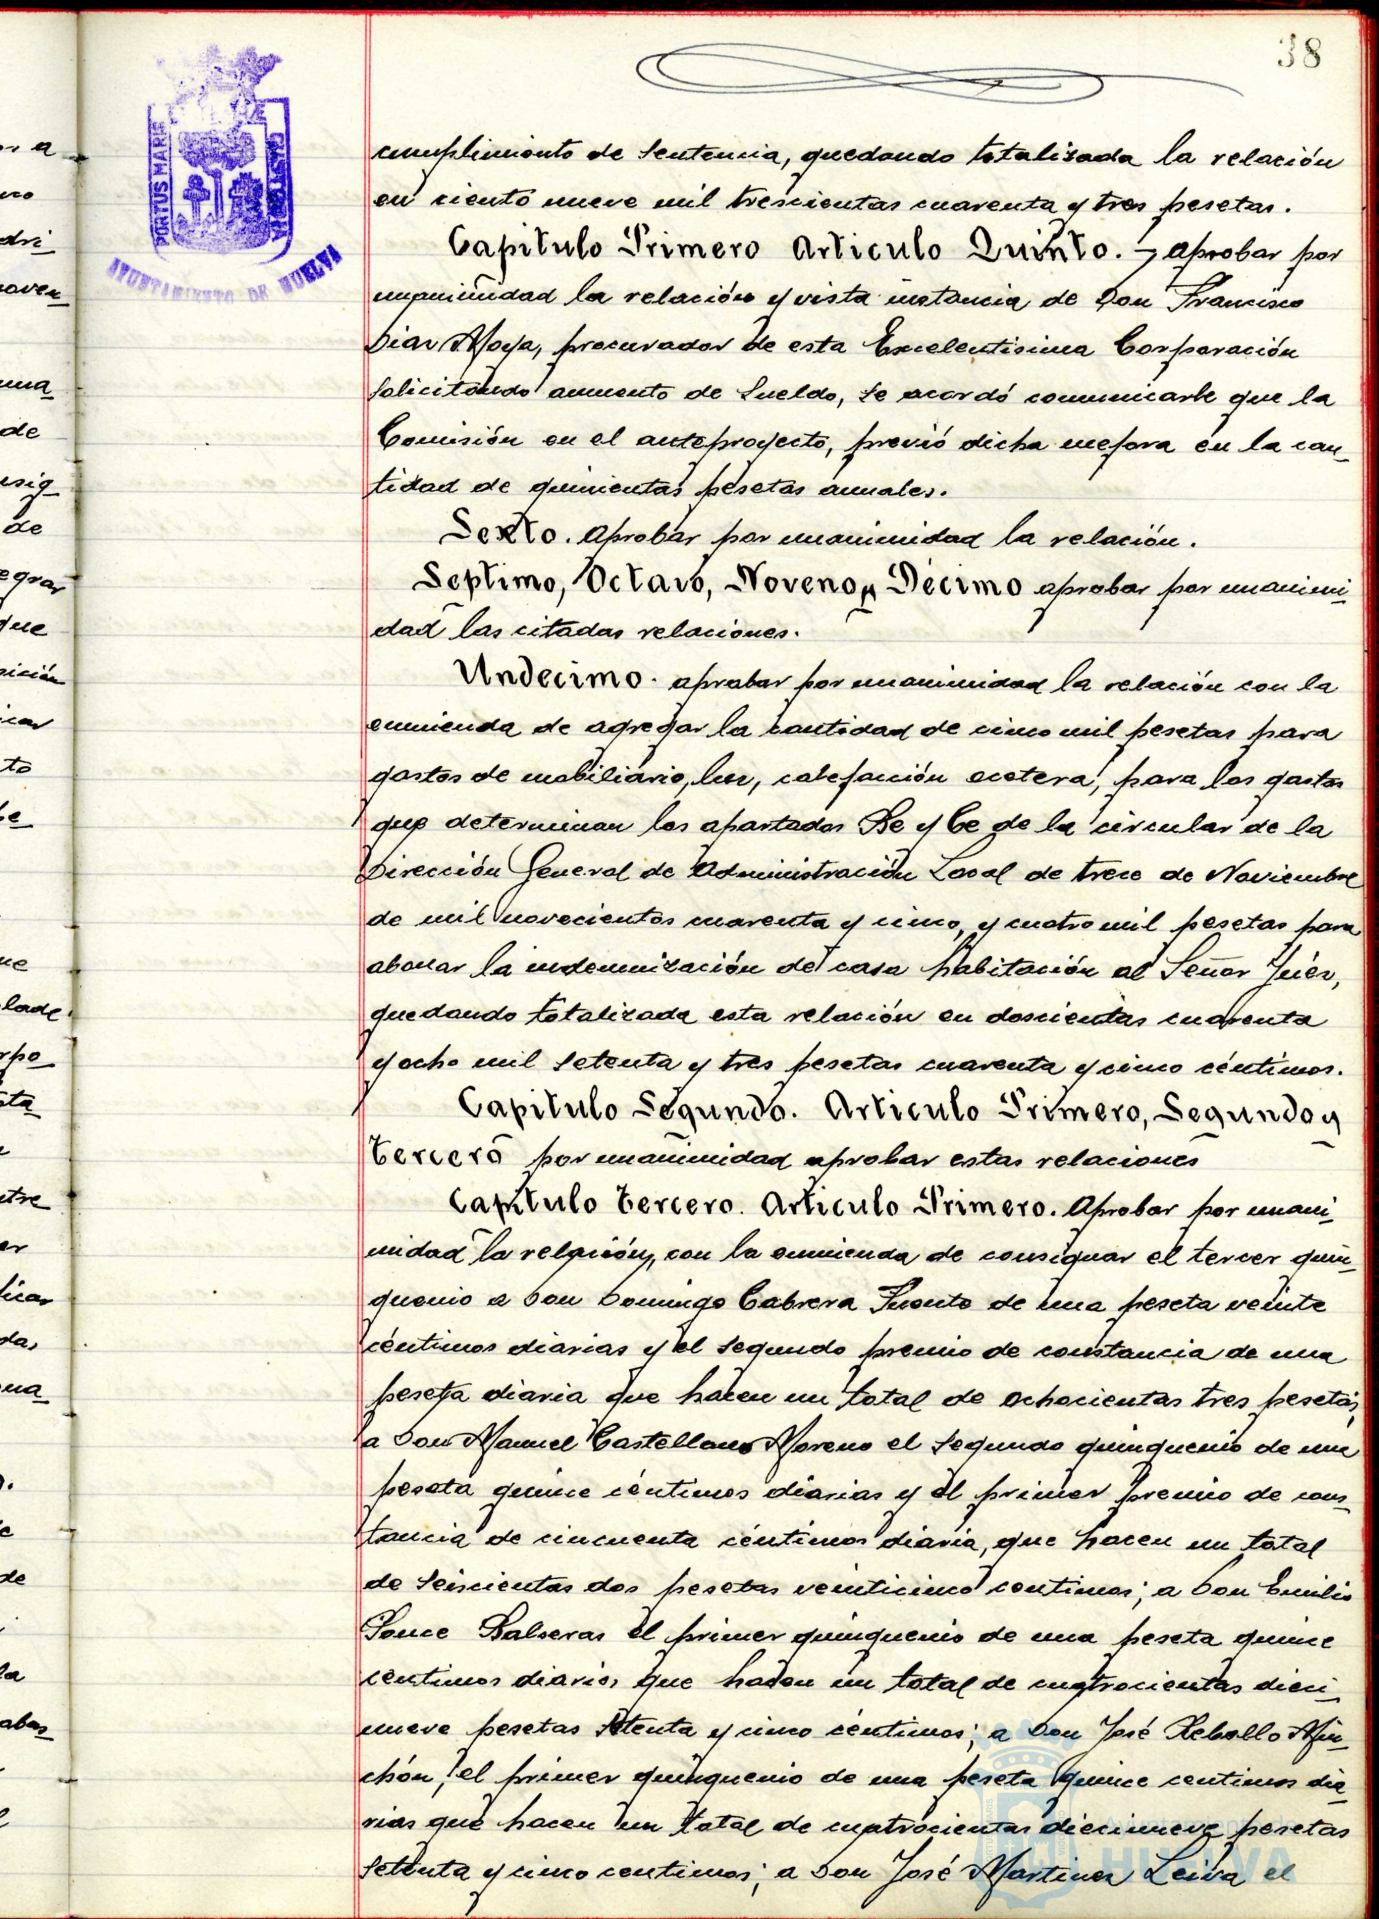 38
PORTUS MARIS
AYUNTAMIENTO DE HUELVA
cumplimiento de sentencia, quedando totalizada la relación
en ciento nueve mil trescientas cuarenta y tres pesetas.
Capitulo Primero Articulo Quinto. Aprobar por
unanimidad la relación y vista instancia de Don Francisco
Diaz Moya, procurador de esta Excelentisima Corporación
solicitando aumento de sueldo, se acordó comunicarle que la
Comisión en el anteproyecto, previó dicha mejora en la can_
tidad de quinientas pesetas anuales.
Sexto. Aprobar por unanimidad la relación.
Septimo, Octavo, Noveno y Décimo aprobar por unanimi_
dad las citadas relaciones.
Undecimo. aprobar por unanimidad la relación con la
enmienda de agregar la cantidad de cinco mil pesetas para
gastos de mobiliario, luz, calefacción ecetera, para los gastos
que determinan los apartados Be y Ce de la circular de la
Dirección General de Administración Local de trece de Noviembre
de mil novecientos cuarenta y cinco, y cuatro mil pesetas para
abonar la indemnización de casa habitación al Señor Juéz,
quedando totalizada esta relación en doscientas cuarenta
y ocho mil setenta y tres pesetas cuarenta y cinco céntimos.
Capitulo Segundo. Articulo Primero, Segundo y
Tercero por unanimidad aprobar estas relaciones
Capitulo Tercero. Articulo Primero. Aprobar por unani_
midad la relación, con la enmienda de consignar el tercer quin_
quenio a Don Domingo Cabrera Puente de una peseta veinte
céntimos diarias y el segundo premio de constancia de una
peseta diaria que hacen un total de ochocientas tres pesetas,
a Don Manuel Castellano Moreno el segundo quinquenio de una
peseta quince céntimos diarias y el primer premio de cons_
tancia de cincuenta céntimos diaria, que hacen un total
de seiscientas dos pesetas veinticinco centimos; a Don Emilio
Ponce Balseras el primer quinquenio de una peseta quince
centimos diarios que hacen un total de cuatrocientas dieci_
nueve pesetas setenta y cinco céntimos; a Don José Rebollo Min_
chón, el primer quinquenio de una peseta quince centimos dia_
rias que hacen un total de cuatrocientas diecinueve pesetas
setenta y cinco centimos; a Don José Martinez Leiva el
HUELVA